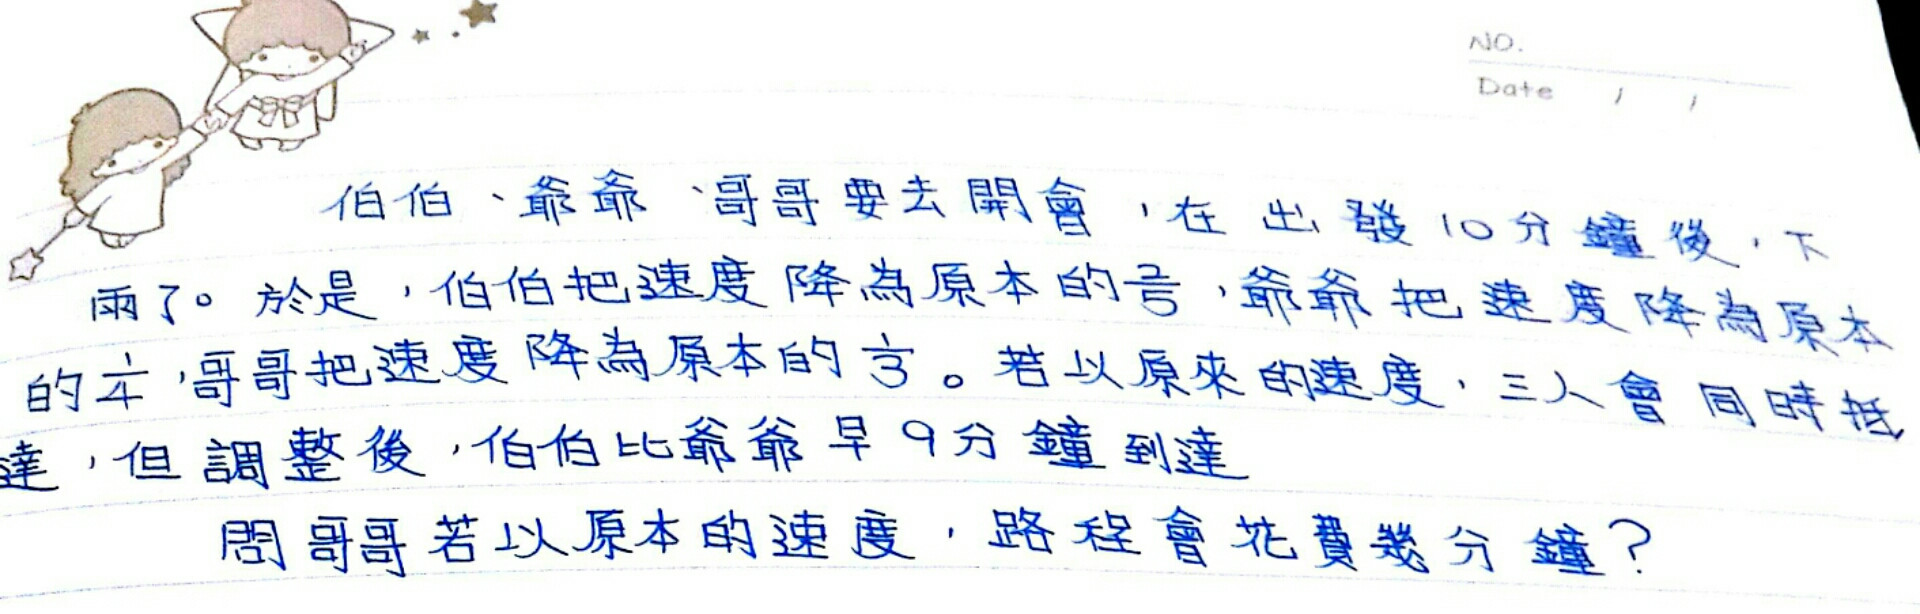 NO.
Date / /
伯伯、爺爺、哥哥要去開會,在出發10分鐘後,下
雨了。於是,伯伯把速度降為原本的2/5,爺爺把速度降為原本
的1/4,哥哥把速度降為原本的1/3。若以原來的速度,三人會同時抵
達,但調整後,伯伯比爺爺早9分鐘到達
問哥哥若以原本的速度,路程會花費幾分鐘?